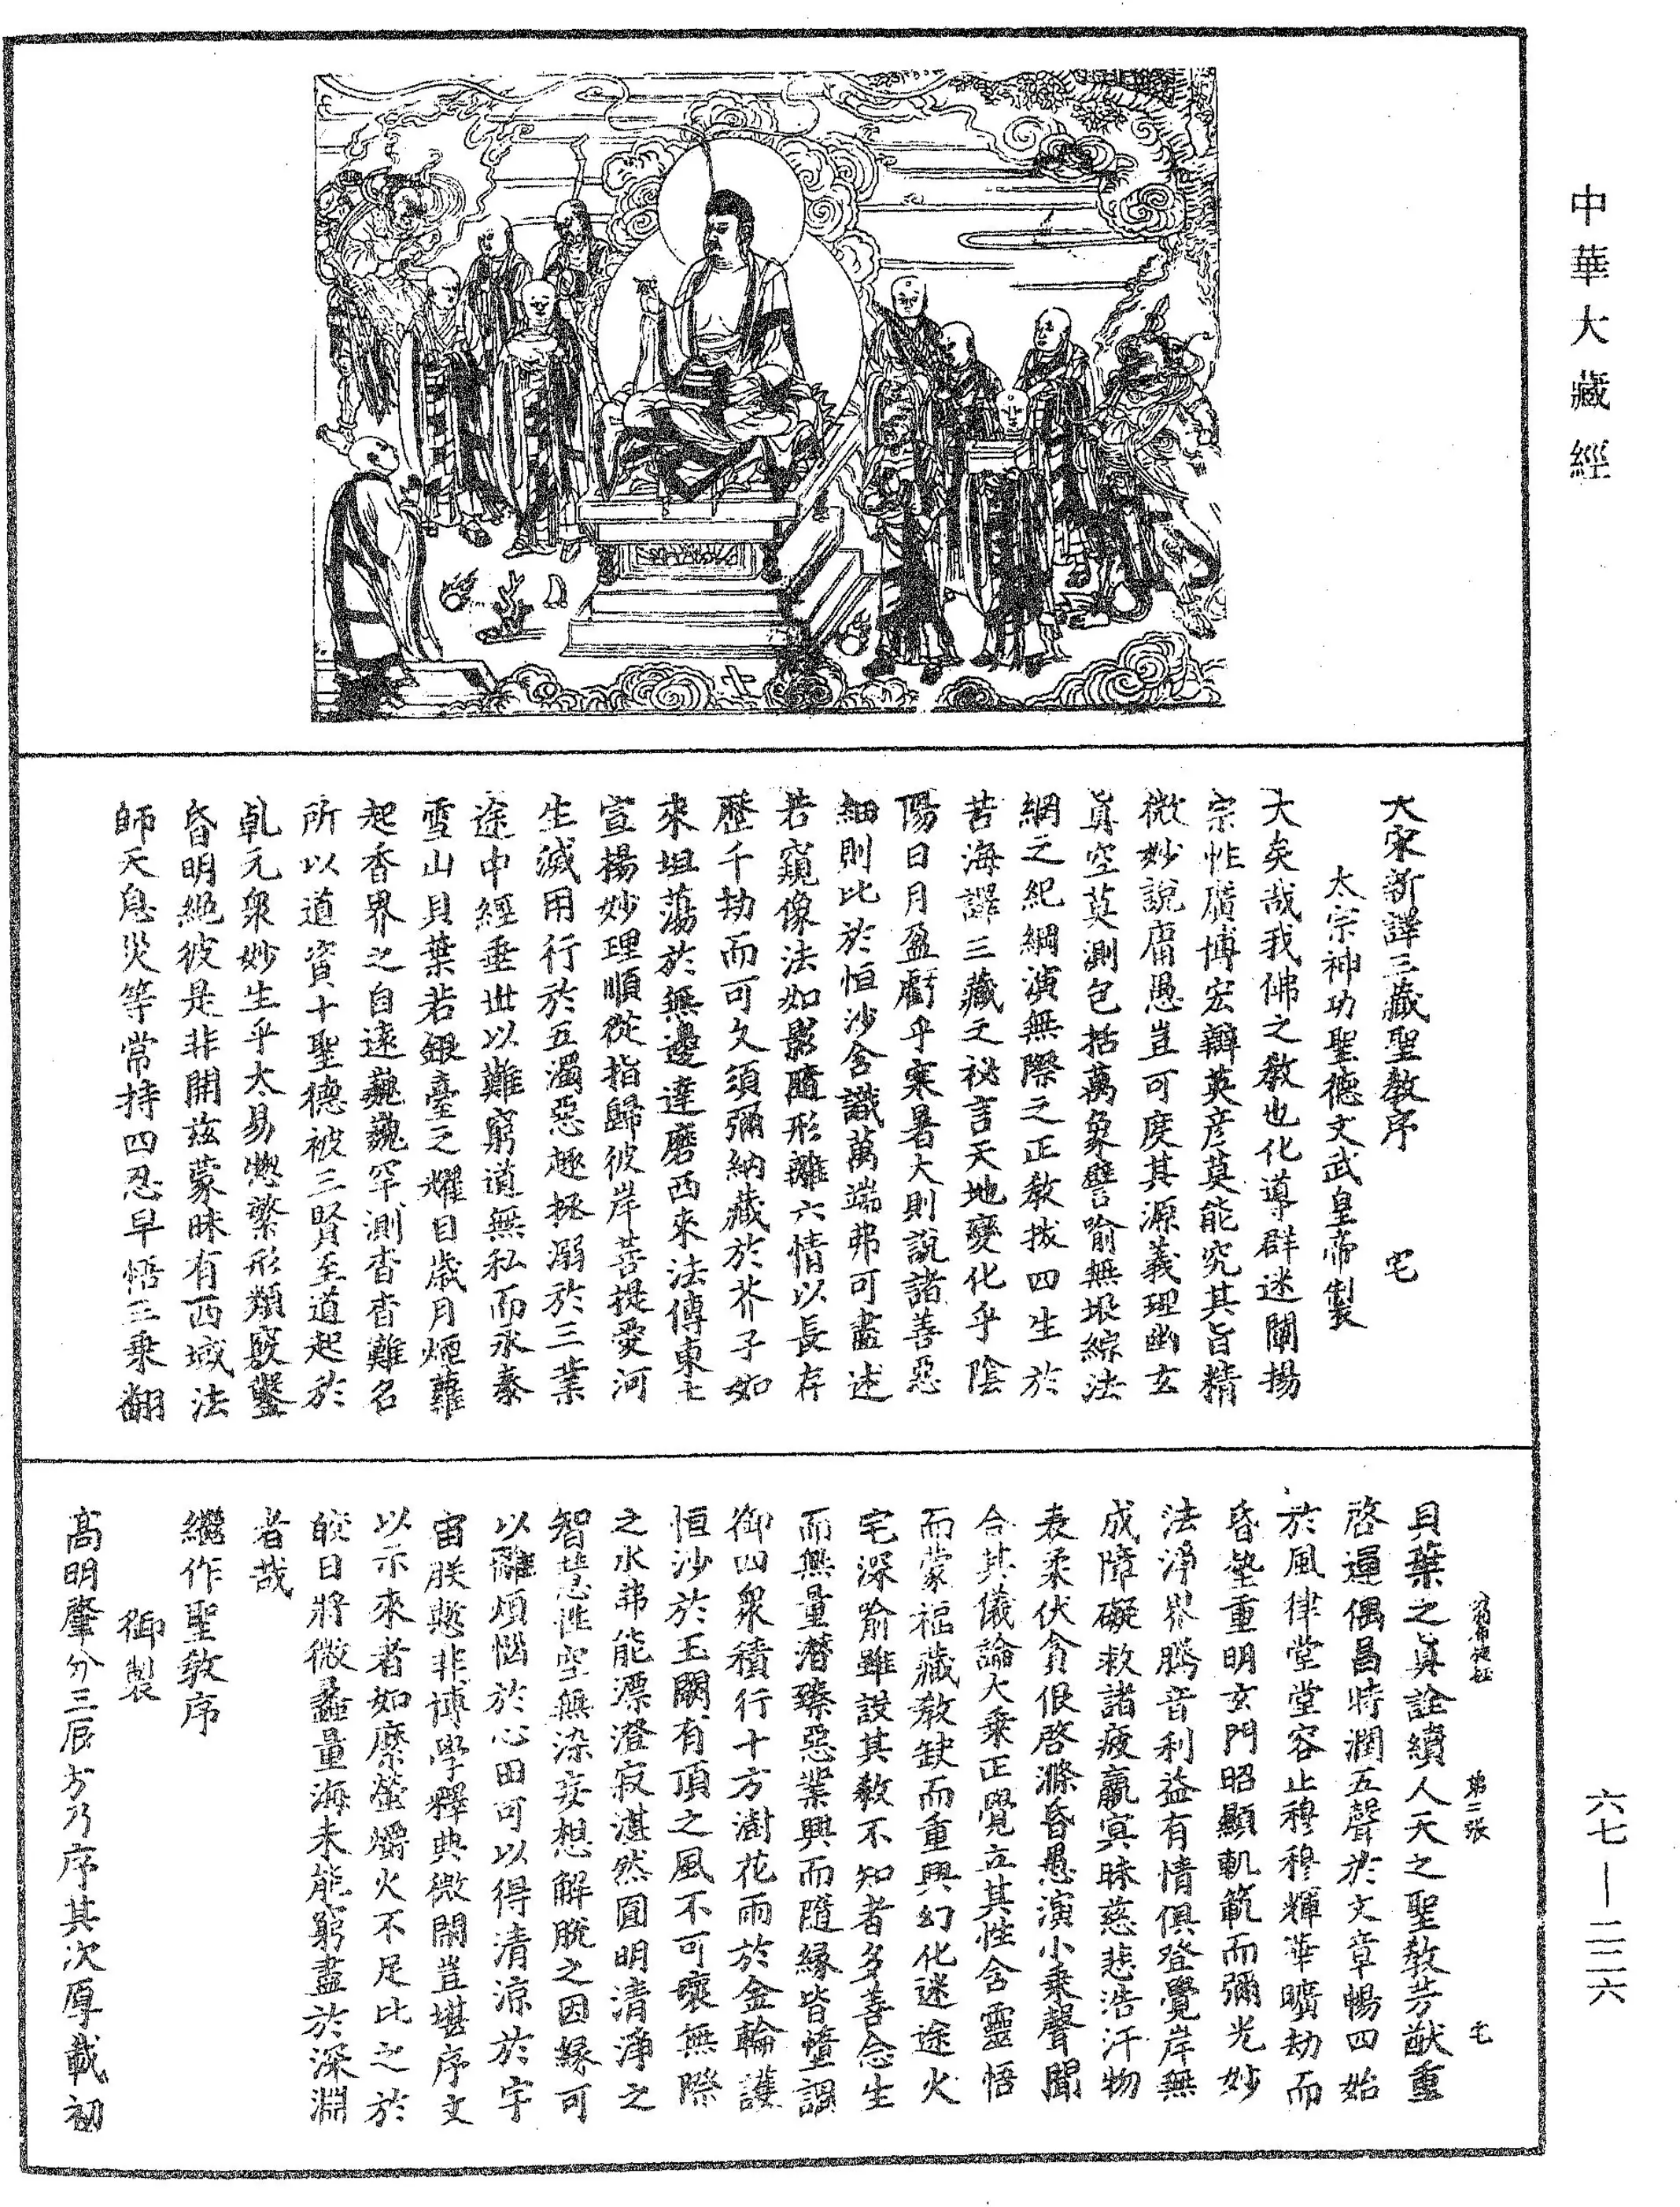 中華大藏經
大宋新譯三藏聖教序　宅
太宗神功聖德文武皇帝製
大矣哉我佛之教也化導群迷闡揚
宗性廣博宏辯英彥莫能究其旨精
微妙說庸愚豈可度其源義理幽玄
真空莫測包括萬象譬喻無垠綜法
網之紀綱演無際之正教拔四生於
苦海譯三藏之祕言天地變化乎陰
陽日月盈虧乎寒暑大則說諸善惡
細則比於恒沙含識萬端弗可盡述
若窺像法如影隨形離六情以長存
歷千劫而可久須彌納藏於芥子如
來坦蕩於無邊達磨西來法傳東土
宣揚妙理順從指歸彼岸菩提愛河
生滅用行於五濁惡趣拯溺於三業
途中經垂世以難窮道無私而永泰
雪山貝葉若銀臺之耀目歲月煙蘿
起香界之自遠巍巍罕測杳杳難名
所以道資十聖德被三賢至道起於
乹元衆妙生乎太易惣繁形類竅鑿
昏明絕彼是非開茲蒙昧有西域法
師天息災等常持四忍早悟三乘翻
第二張　宅
貝葉之真詮續人天之聖教芳猷重
啓運偶昌時潤五聲於文章暢四始
於風律堂堂容止穆穆輝華曠劫而
昏墊重明玄門昭顯軌範而彌光妙
法淨界騰音利益有情俱登覺岸無
成障礙救諸疲羸冥昧慈悲浩汗物
表柔伏貪佷啓滌昏愚演小乘聲聞
合其儀論大乘正覺立其性含靈悟
而蒙福藏教缺而重興幻化迷途火
宅深喻雖設其教不知者多善念生
而無量潛臻惡業興而隨緣皆墮調
御四衆積行十方澍花雨於金輪護
恒沙於玉闕有頂之風不可壞無際
之水弗能漂澄寂湛然圓明清淨之
智慧性空無染妄想解脫之因緣可
以離煩惱於心田可以得清涼於宇
宙朕慙非博學釋典微閑豈堪序文
以示來者如縻螢爝火不足比之於
皎日將微蠡量海未能窮盡於深淵
者哉
繼作聖教序
御製
高明肇分三辰方乃序其次厚載初
六七—二二六